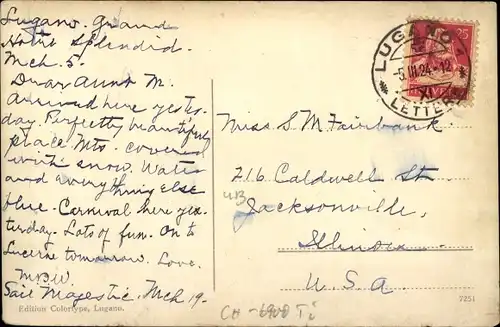 Lugano. Grand
Hotel Splendid.
Mch. 5.
Dear Aunt M.
Arrived here yester-
day. Perfectly beautiful
place Mts. covered
with snow. Water
and everything else
blue. Carnival here yes-
terday. Lots of fun. On to
Lucerne tomorrow. Love.
M.B.W.
Sail Majestic, Mch 19.
Edition Colortype, Lugano.
LUGANO
-5.III.24.-12
XI
LETTERE
25
Miss S. M. Fairbank
716 Caldwell St.
Jacksonville,
Illinois
U.S.A.
7251